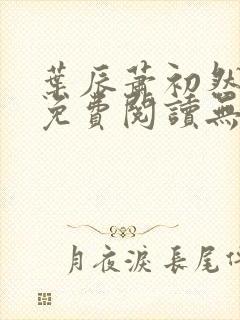 葉辰蕭初然
免費閱讀無
月夜淚長尾